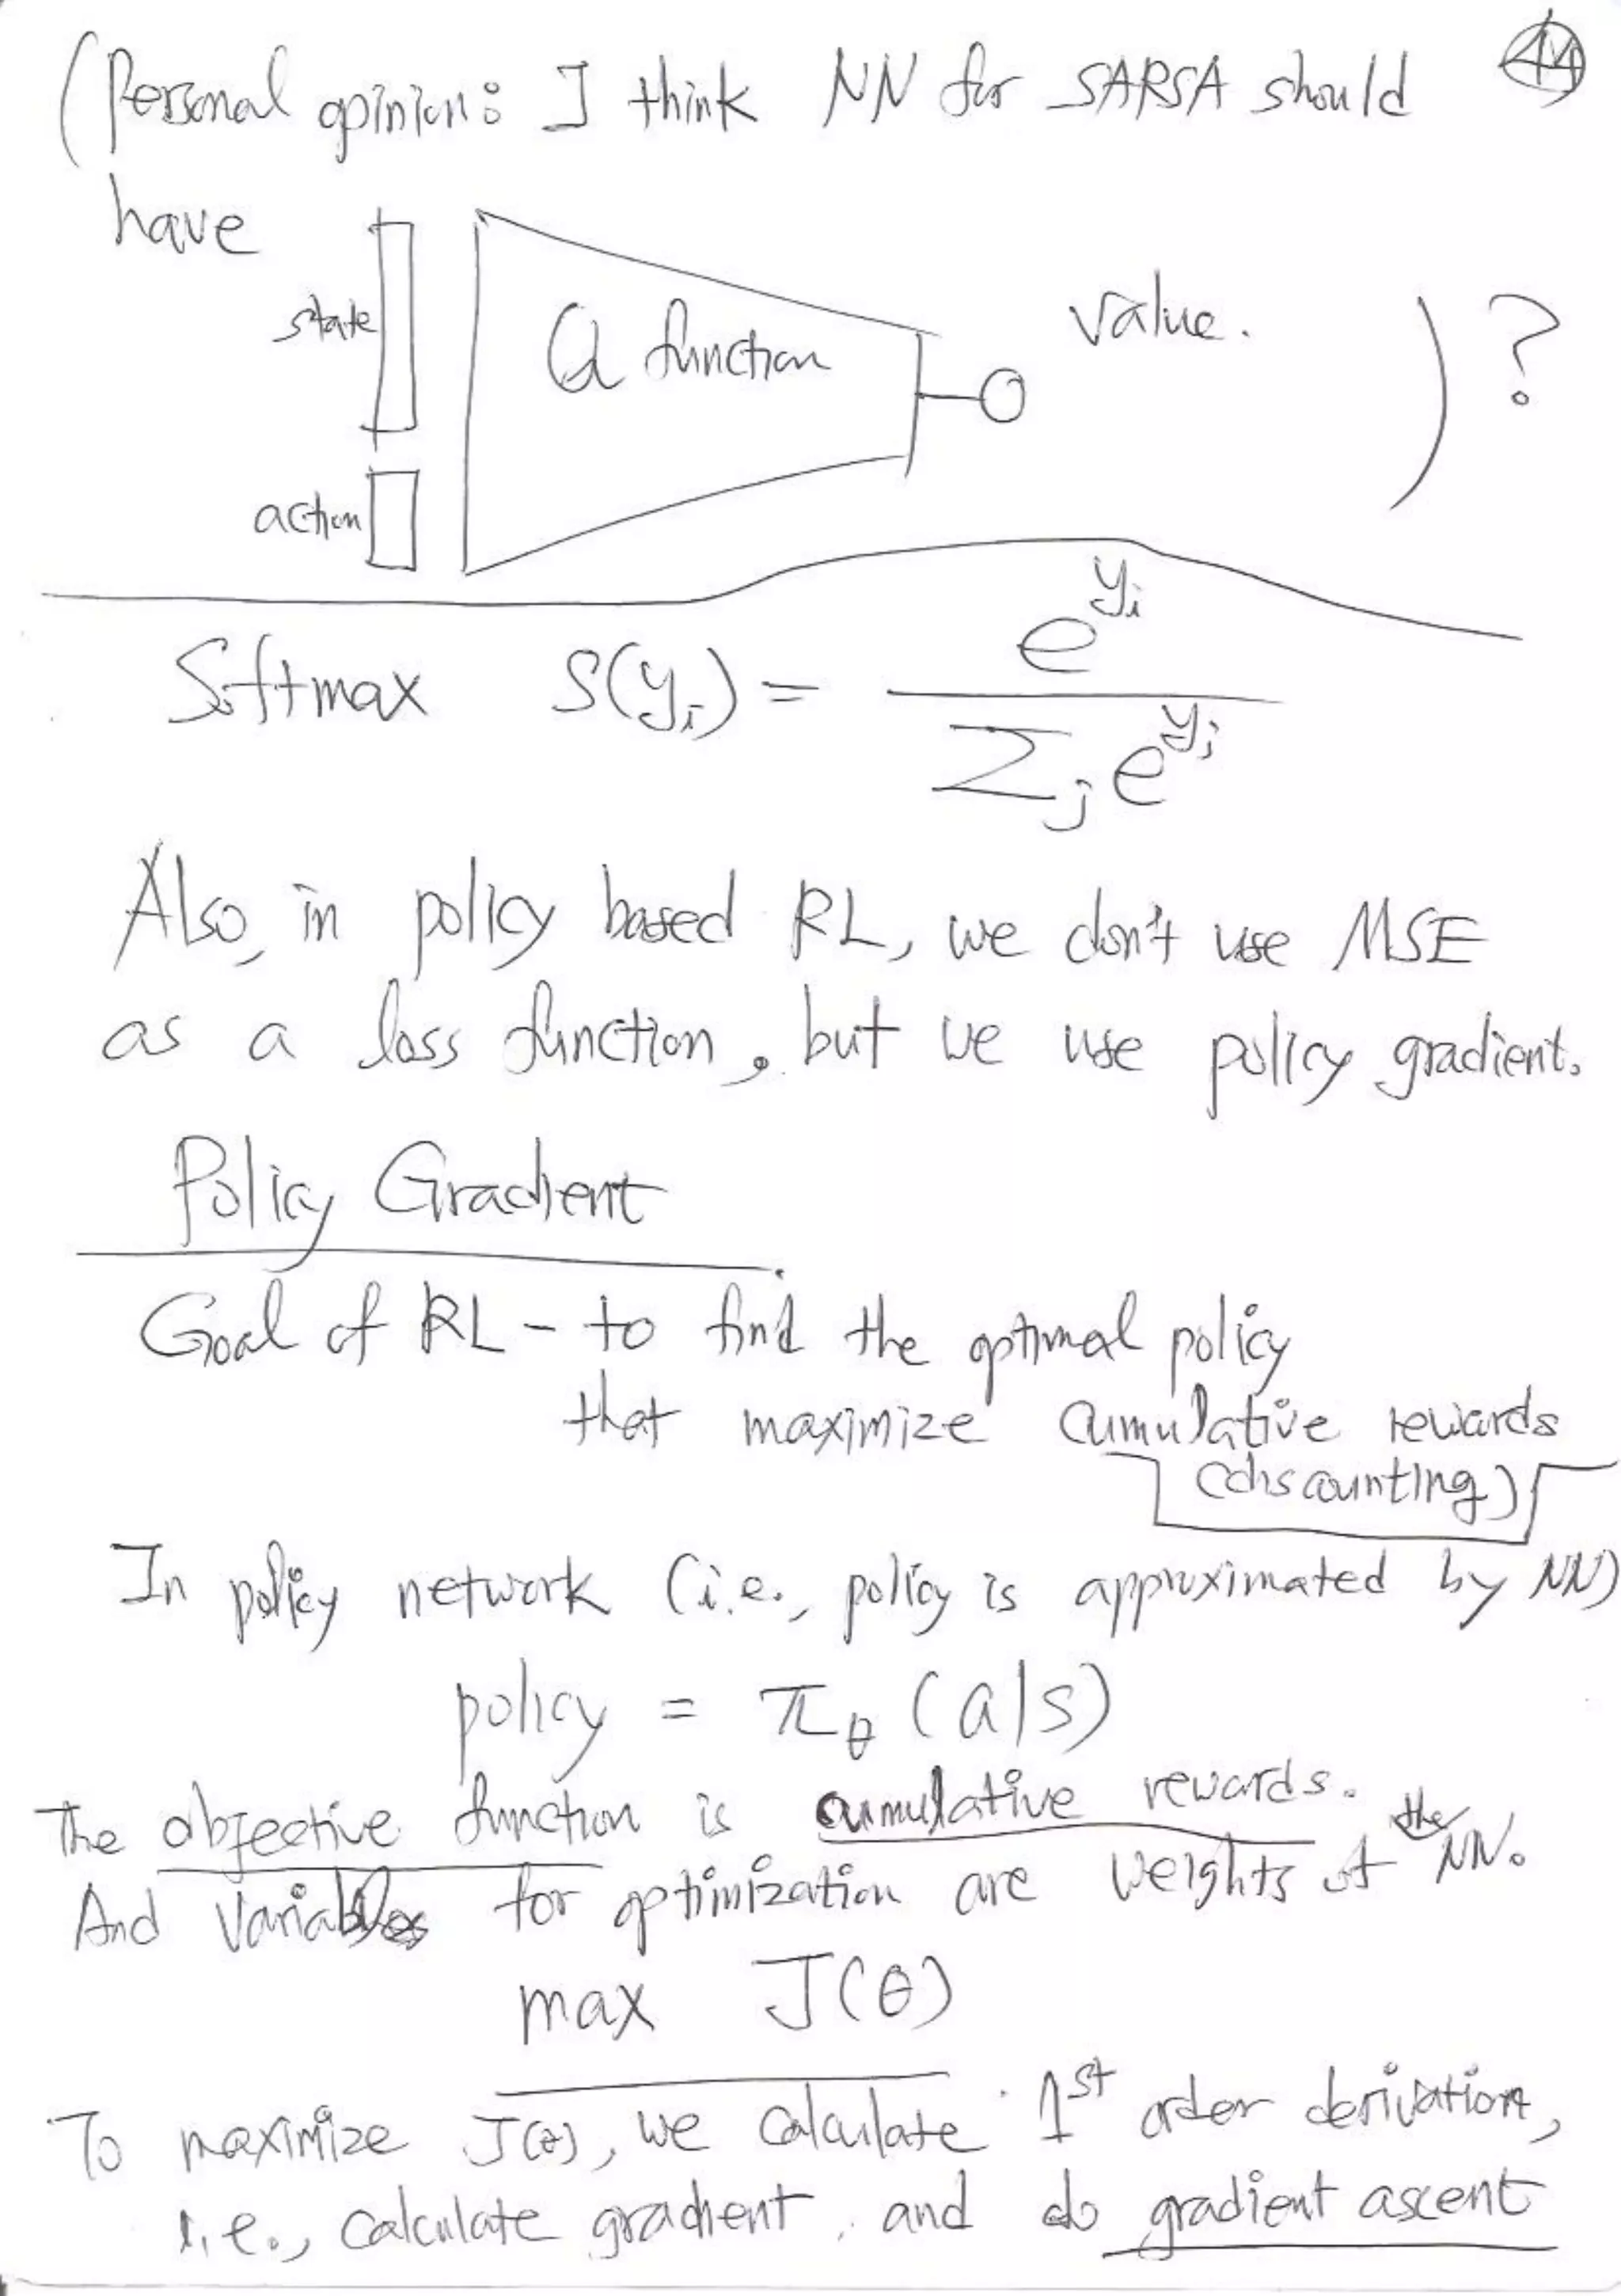 44
(Personal opinion: I think NN for SARSA should
have
state
Q function
value.
)?
action
Softmax S(yi) = e^yi / Σj e^yj
Also, in policy based RL, we don't use MSE
as a loss function, but we use policy gradient.
Policy Gradient
Goal of RL - to find the optimal policy
that maximize cumulative rewards
(discounting)
In policy network (i.e., policy is approximated by NN)
policy = πθ (a|s)
The objective function is cumulative rewards.
And variables for optimization are weights of the NN.
max J(θ)
To maximize J(θ), we calculate 1st order derivation,
i.e., calculate gradient, and do gradient ascent